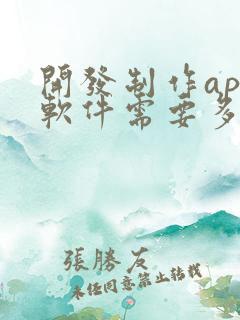 開發制作ap
軟件需要多
張勝友
未經同意禁止轉載